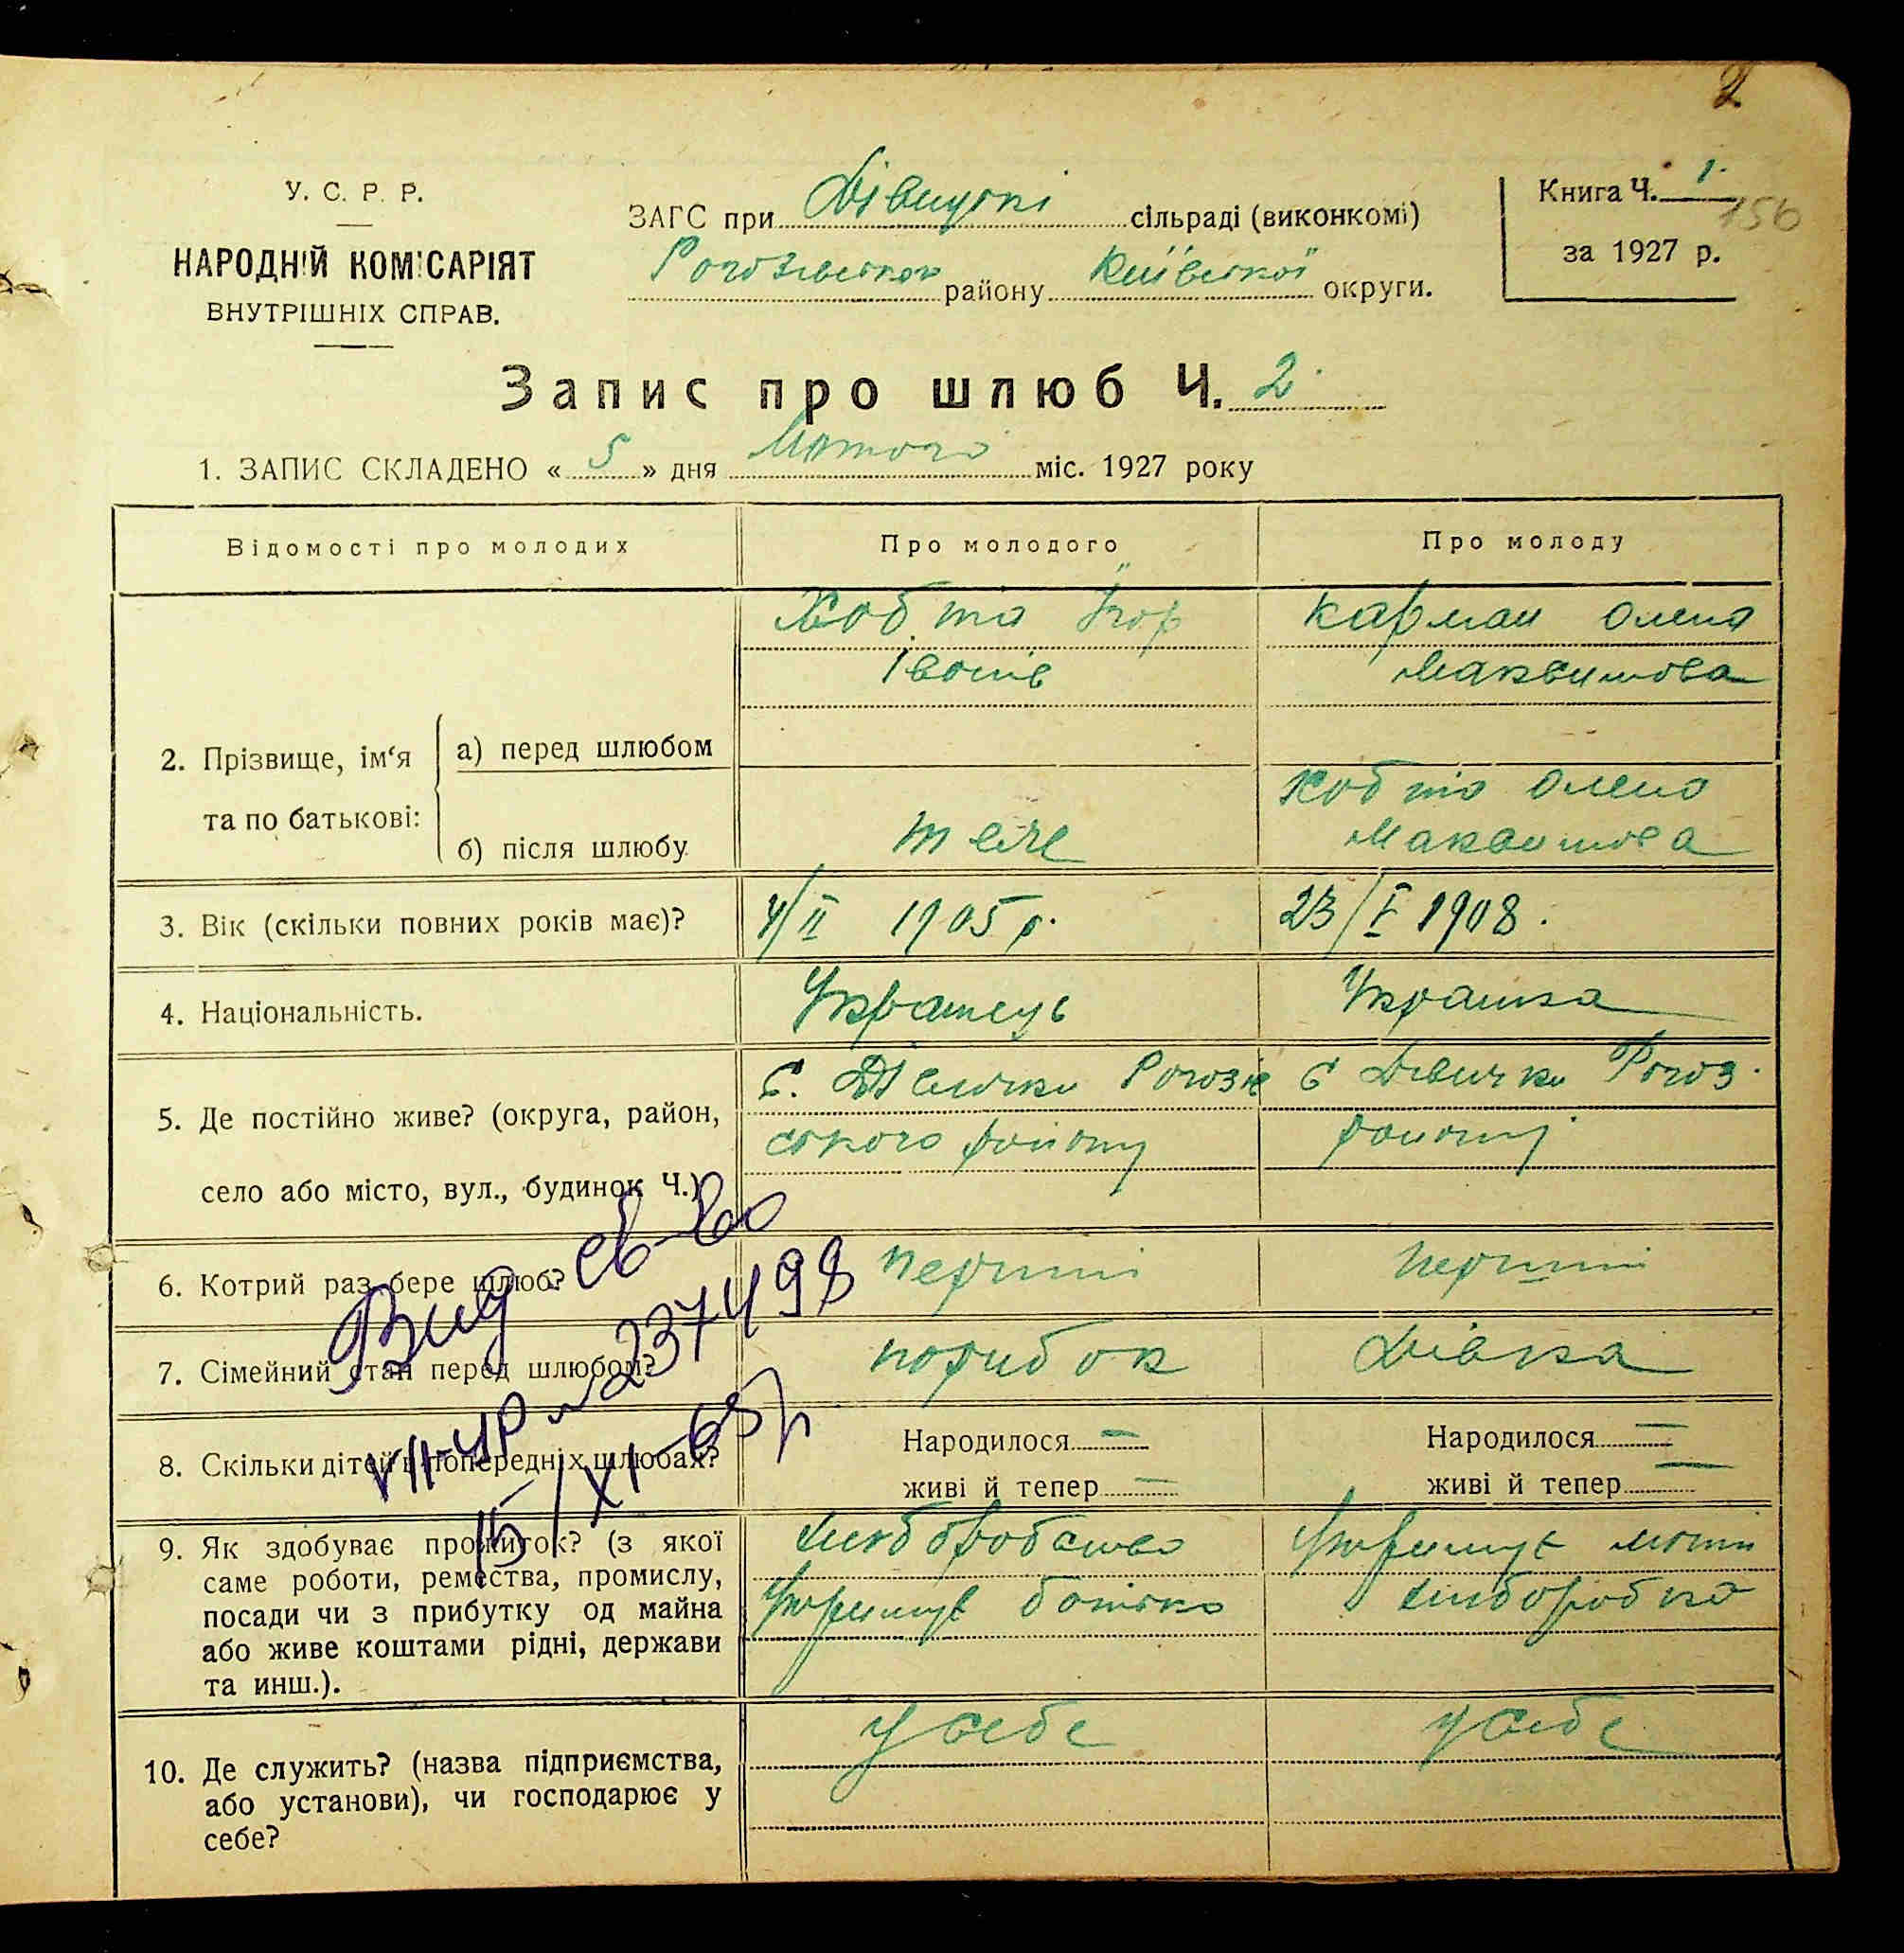 2
У. С. Р. Р.
НАРОДНІЙ КОМІСАРІЯТ
ВНУТРІШНІХ СПРАВ.
ЗАГС при Дівицькі сільраді (виконкомі)
району Київської округи.
Книга Ч. 1.
156
за 1927 р.
Запис про шлюб Ч. 2.
1. ЗАПИС СКЛАДЕНО « 5 » дня Лютого міс. 1927 року
Відомості про молодих
Про молодого
Про молоду
2. Прізвище, ім‘я та по батькові:
а) перед шлюбом
Кобта
Іванів
Карман Олена
Максимова
б) після шлюбу
теже
Кобта Олена
Максимова
3. Вік (скільки повних років має)?
4/II 1905 р.
23/V 1908.
4. Національність.
Українець
Українка
5. Де постійно живе? (округа, район,
село або місто, вул., будинок Ч.)
С. Дівички Рогозів
ського району
С Дівички Рогоз.
району
6. Котрий раз бере шлюб?
перший
перший
7. Сімейний стан перед шлюбом?
парубок
Дівка
8. Скільки дітей в попередніх шлюбах?
Народилося —
живі й тепер —
Народилося —
живі й тепер —
9. Як здобуває прожиток? (з якої
саме роботи, ремества, промислу,
посади чи з прибутку од майна
або живе коштами рідні, держави
та инш.).
хлібобробство
Утримує батько
Утримує мати
хлібобробка
10. Де служить? (назва підприємства,
або установи), чи господарює у
себе?
у себе
у себе
Выд св-во
VII-УР № 237498
15/XI-65 р